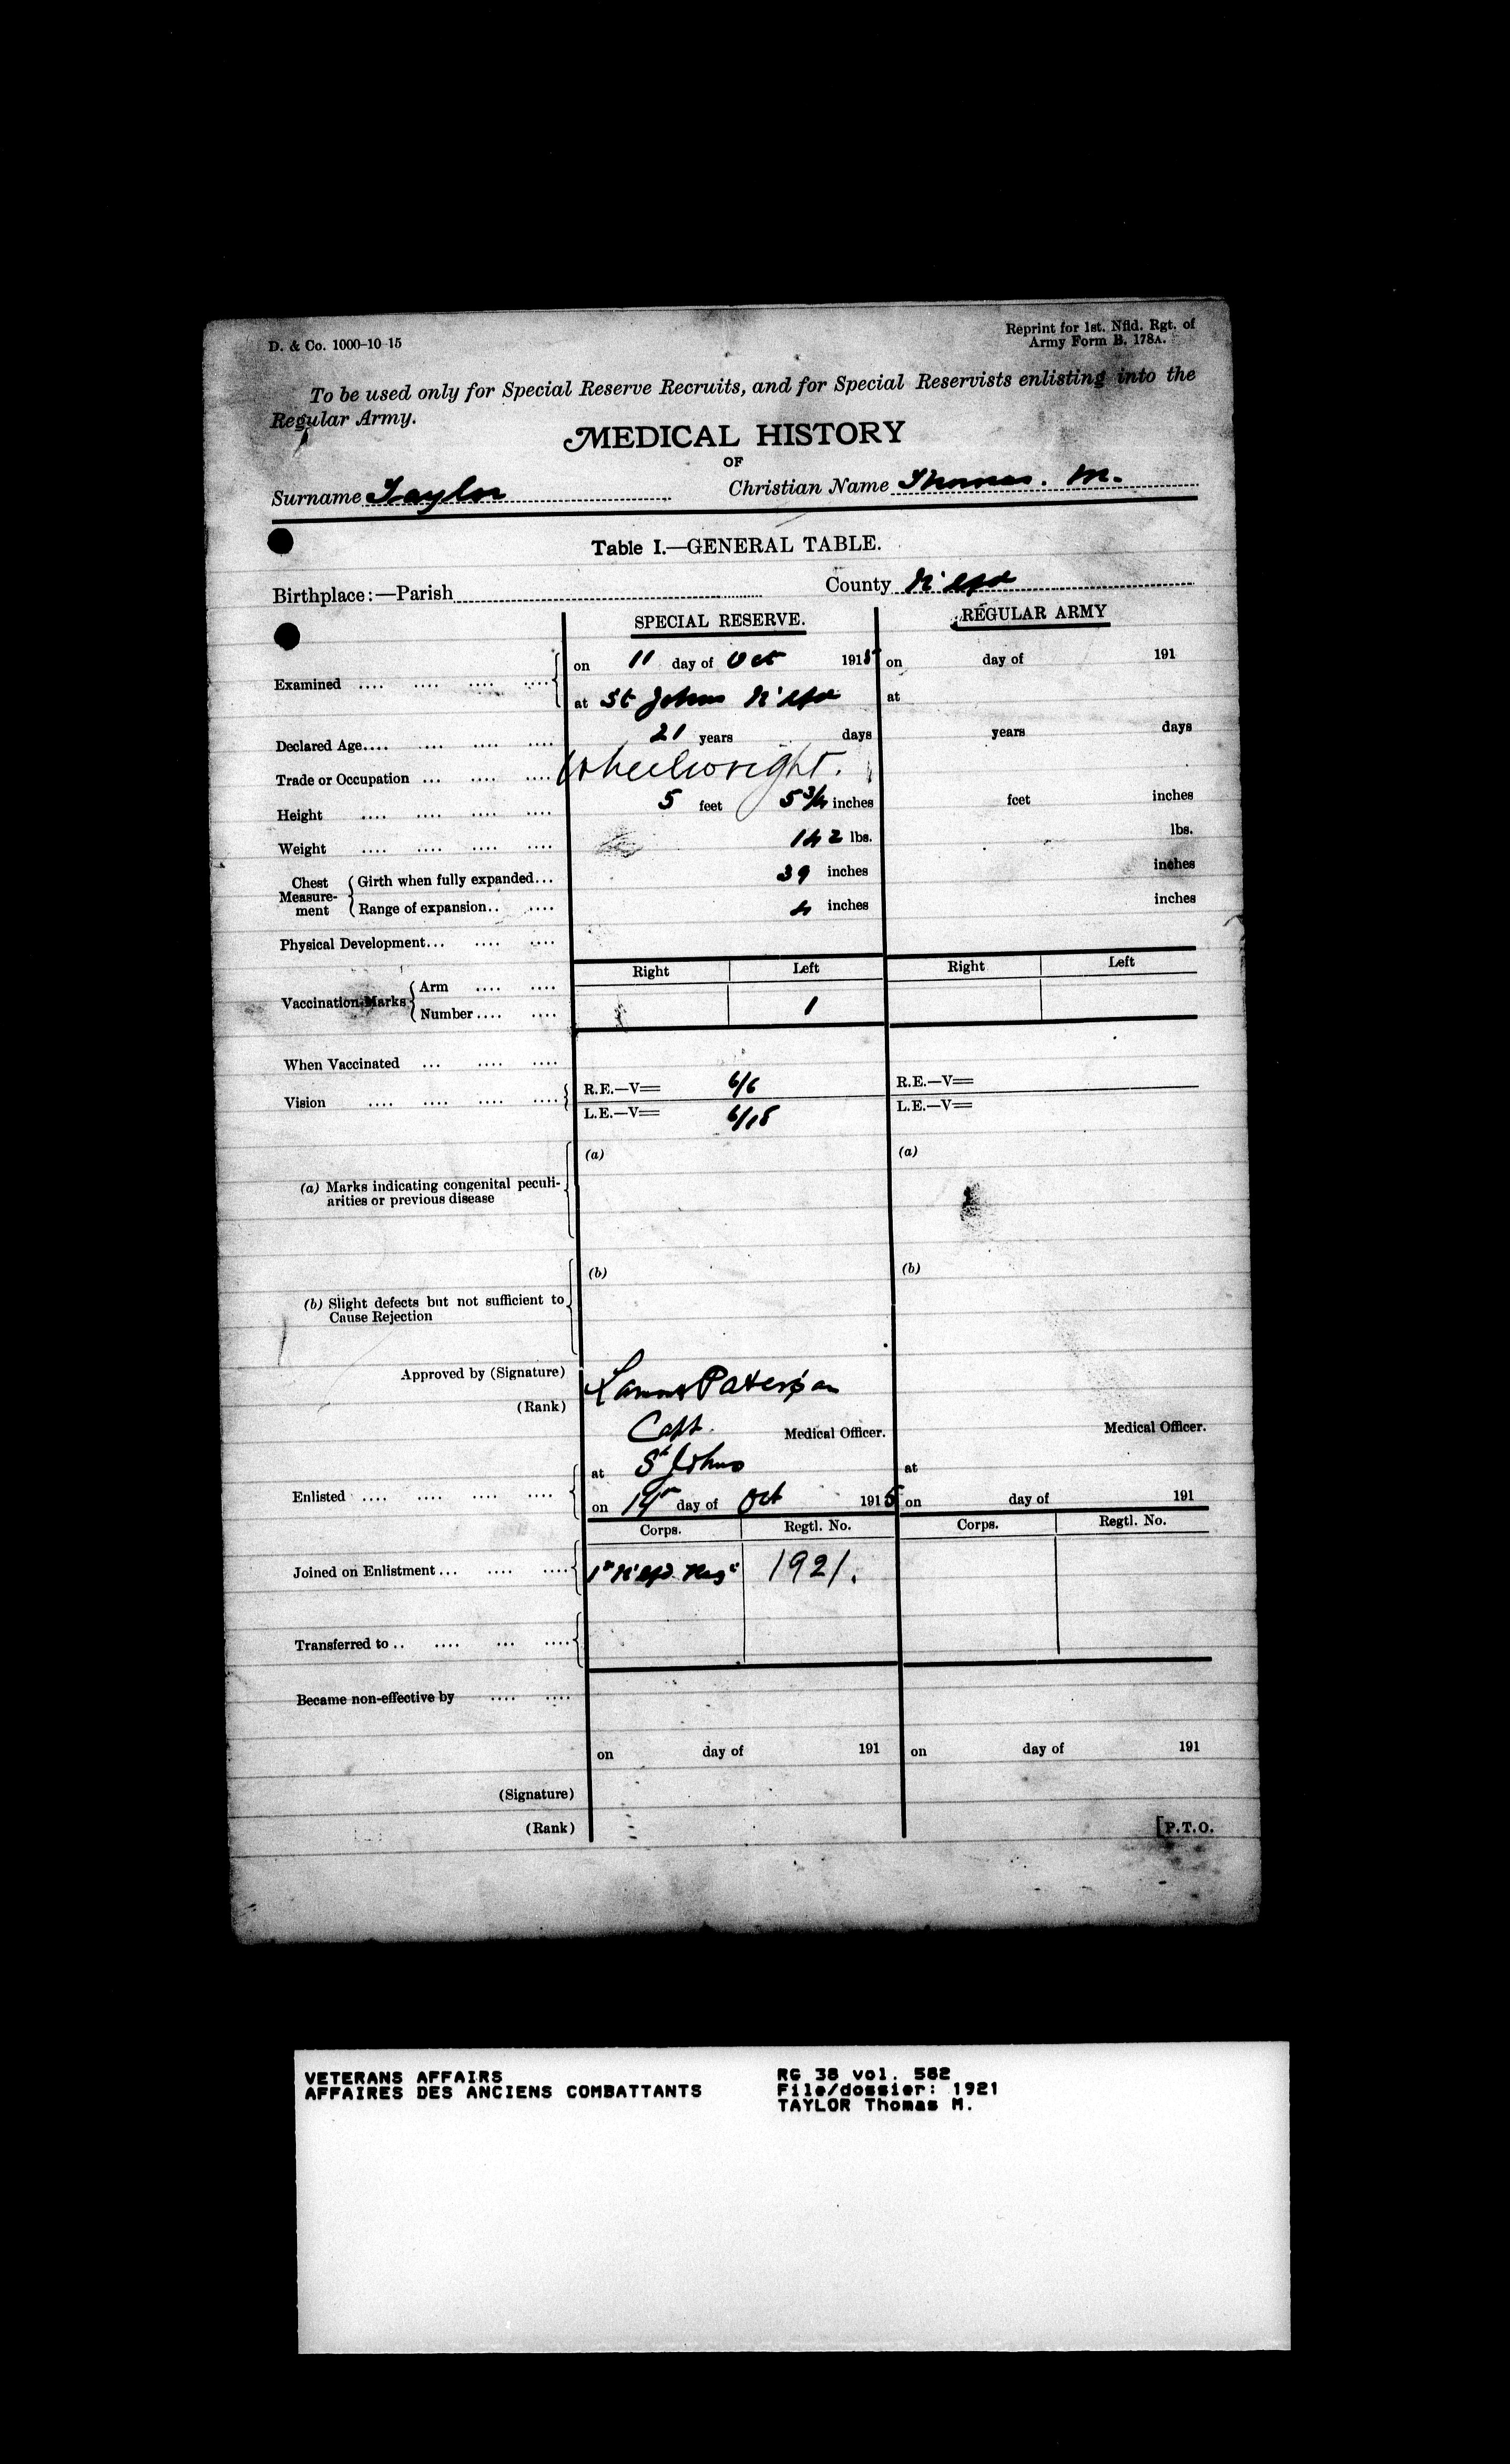 D. & Co. 1000-10-15
Reprint for 1st. Nfld. Rgt. of
Army Form B. 178A.
To be used only for Special Reserve Recruits, and for Special Reservists enlisting into the
Regular Army.
MEDICAL HISTORY
OF
Surname Taylor Christian Name Thomas. M.
Table I.—GENERAL TABLE.
Birthplace:—Parish County N'Fld
SPECIAL RESERVE. REGULAR ARMY
Examined .... .... .... .... on 11 day of Oct 1915 on day of 191
at St Johns N'Fld at
Declared Age.... .... .... .... 21 years days years days
Trade or Occupation ... .... .... Wheelwright.
Height .... .... .... .... 5 feet 5 3/4 inches feet inches
Weight .... .... .... .... 142 lbs. lbs.
Chest Measurement Girth when fully expanded... 39 inches inches
Range of expansion.. .... 4 inches inches
Physical Development... .... ....
Right Left Right Left
Vaccination Marks Arm .... ....
Number .... .... 1
When Vaccinated ... .... ....
Vision .... .... .... .... R.E.—V= 6/6 R.E.—V=
L.E.—V= 6/18 L.E.—V=
(a) (a)
(a) Marks indicating congenital peculi-
arities or previous disease
(b) (b)
(b) Slight defects but not sufficient to
Cause Rejection
Approved by (Signature) Lamont Paterson
(Rank) Capt. Medical Officer. Medical Officer.
at St Johns at
Enlisted .... .... .... .... on 14 day of Oct 1915 on day of 191
Corps. Regtl. No. Corps. Regtl. No.
Joined on Enlistment ... .... .... 1st N'Fld. Regt 1921.
Transferred to .. .... ... ....
Became non-effective by .... ....
on day of 191 on day of 191
(Signature)
(Rank)
[P.T.O.
VETERANS AFFAIRS
AFFAIRES DES ANCIENS COMBATTANTS
RG 38 vol. 582
File/dossier: 1921
TAYLOR Thomas M.